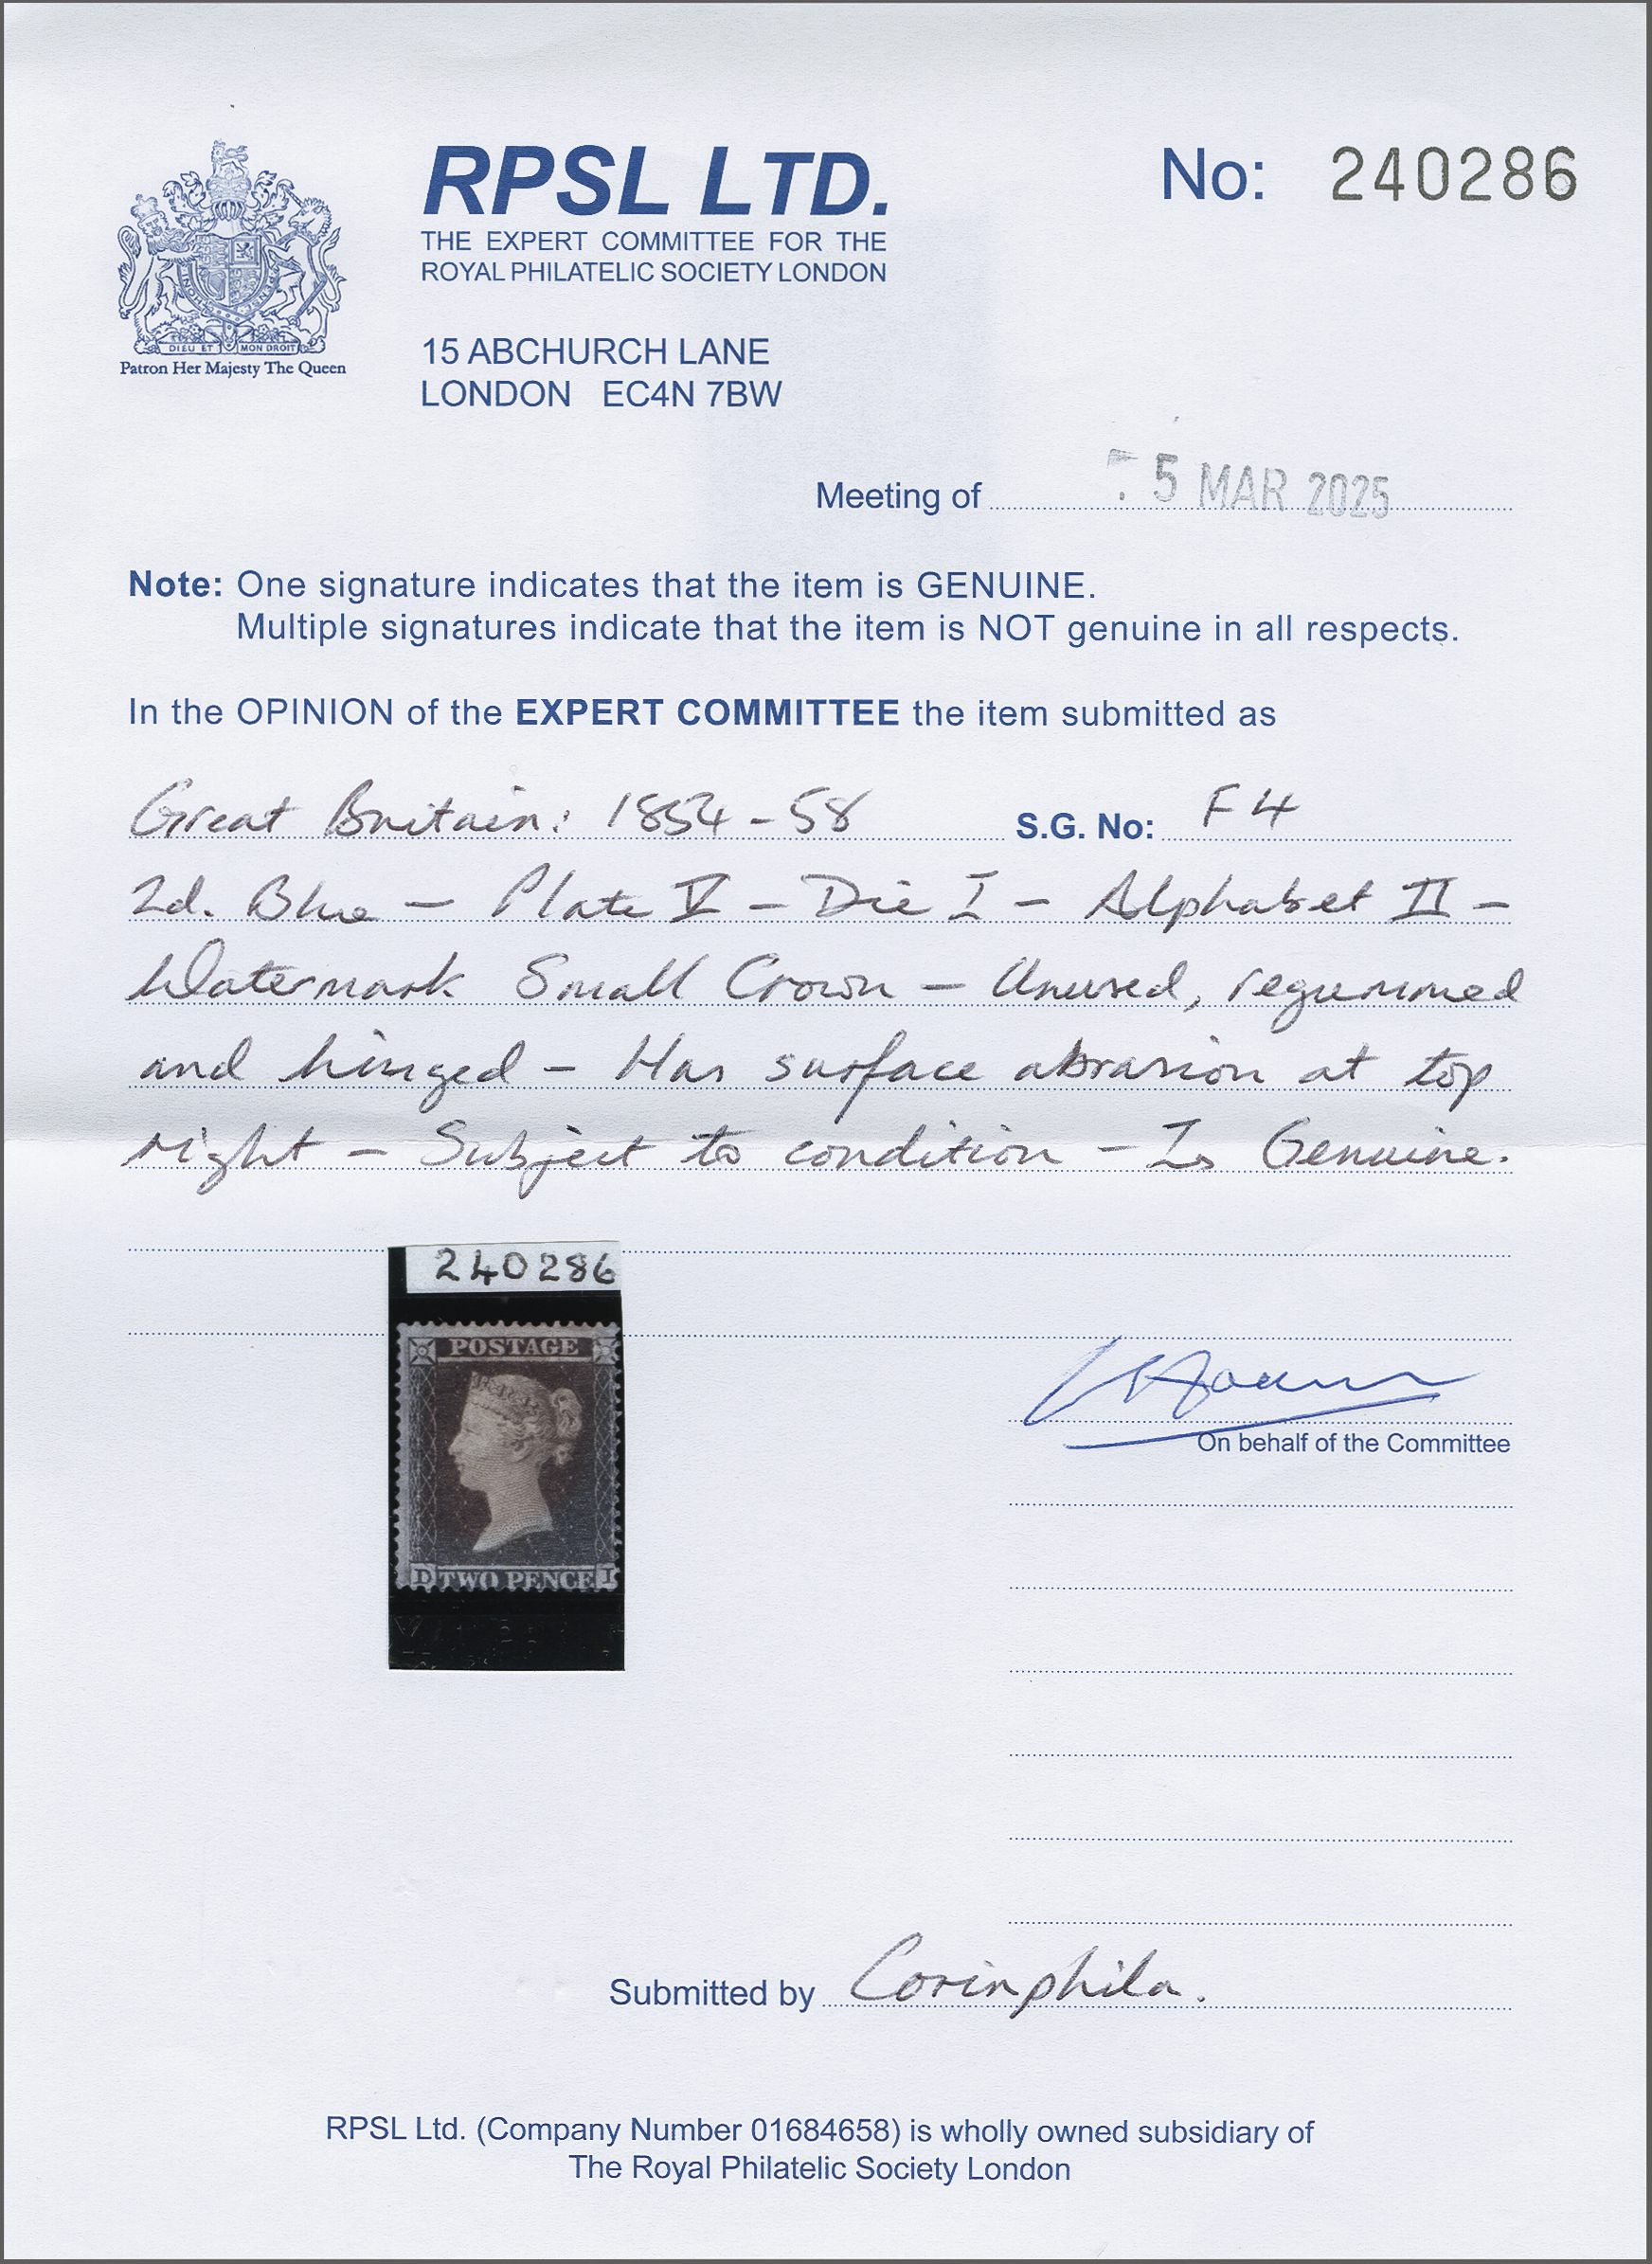 RPSL LTD.
No: 240286
THE EXPERT COMMITTEE FOR THE
ROYAL PHILATELIC SOCIETY LONDON
DIEU ET MON DROIT
Patron Her Majesty The Queen
15 ABCHURCH LANE
LONDON EC4N 7BW
Meeting of 5 MAR 2025
Note: One signature indicates that the item is GENUINE.
Multiple signatures indicate that the item is NOT genuine in all respects.
In the OPINION of the EXPERT COMMITTEE the item submitted as
Great Britain: 1854-58 S.G. No: F4
2d. Blue - Plate V - Die I - Alphabet II -
Watermark Small Crown - Unused, regummed
and hinged - Has surface abrasion at top
right - Subject to condition - Is Genuine.
240286
POSTAGE
D TWO PENCE I
On behalf of the Committee
Submitted by Corinphila.
RPSL Ltd. (Company Number 01684658) is wholly owned subsidiary of
The Royal Philatelic Society London